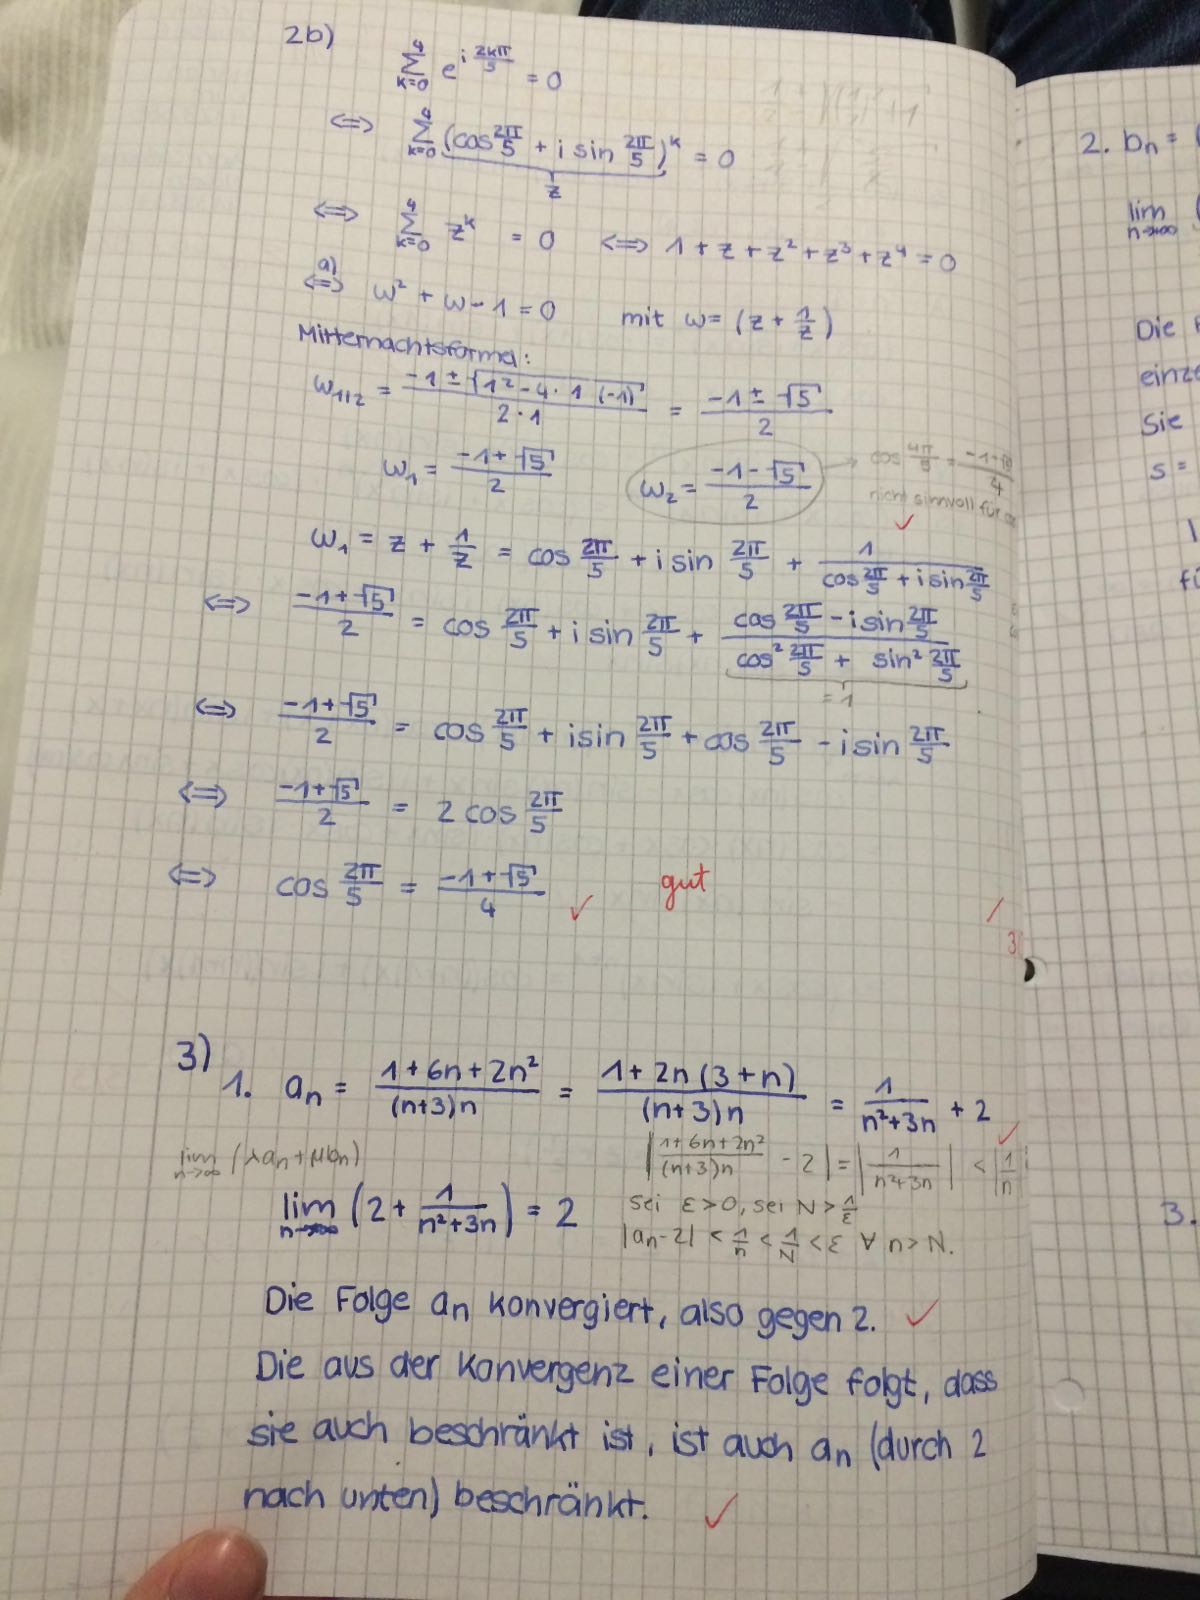 2b)
∑_{k=0}^{4} e^{i 2kπ/5} = 0
⟺ ∑_{k=0}^{4} (cos 2π/5 + i sin 2π/5)^k = 0
z
⟺ ∑_{k=0}^{4} z^k = 0 ⟺ 1 + z + z² + z³ + z⁴ = 0
a)
⟺ w² + w - 1 = 0 mit w = (z + 1/z)
Mitternachtsformel:
w_{1/2} = (-1 ± √(1² - 4·1 (-1)))/(2·1) = (-1 ± √5)/2
w₁ = (-1 + √5)/2 w₂ = (-1 - √5)/2 → cos 4π/5 = (-1-√5)/4
nicht sinnvoll für
w₁ = z + 1/z = cos 2π/5 + i sin 2π/5 + 1/(cos 2π/5 + i sin 2π/5)
⟺ (-1+√5)/2 = cos 2π/5 + i sin 2π/5 + (cos 2π/5 - i sin 2π/5)/(cos² 2π/5 + sin² 2π/5)
= 1
⟺ (-1+√5)/2 = cos 2π/5 + i sin 2π/5 + cos 2π/5 - i sin 2π/5
⟺ (-1+√5)/2 = 2 cos 2π/5
⟺ cos 2π/5 = (-1+√5)/4 ✓ gut
/
3
3)
1. aₙ = (1+6n+2n²)/((n+3)n) = (1+2n(3+n))/((n+3)n) = 1/(n²+3n) + 2 ✓
lim_{n→∞} (λaₙ + μbₙ)
|(1+6n+2n²)/((n+3)n) - 2| = |1/(n²+3n)| < |1/n|
lim_{n→∞} (2 + 1/(n²+3n)) = 2
sei ε > 0, sei N > 1/ε
|aₙ-2| < 1/n < 1/N < ε ∀ n > N.
Die Folge aₙ konvergiert, also gegen 2. ✓
Die aus der Konvergenz einer Folge folgt, dass
sie auch beschränkt ist, ist auch aₙ (durch 2
nach unten) beschränkt. ✓
2. bₙ =
lim_{n→∞} (
Die
einze
Sie
s =
fü
3.